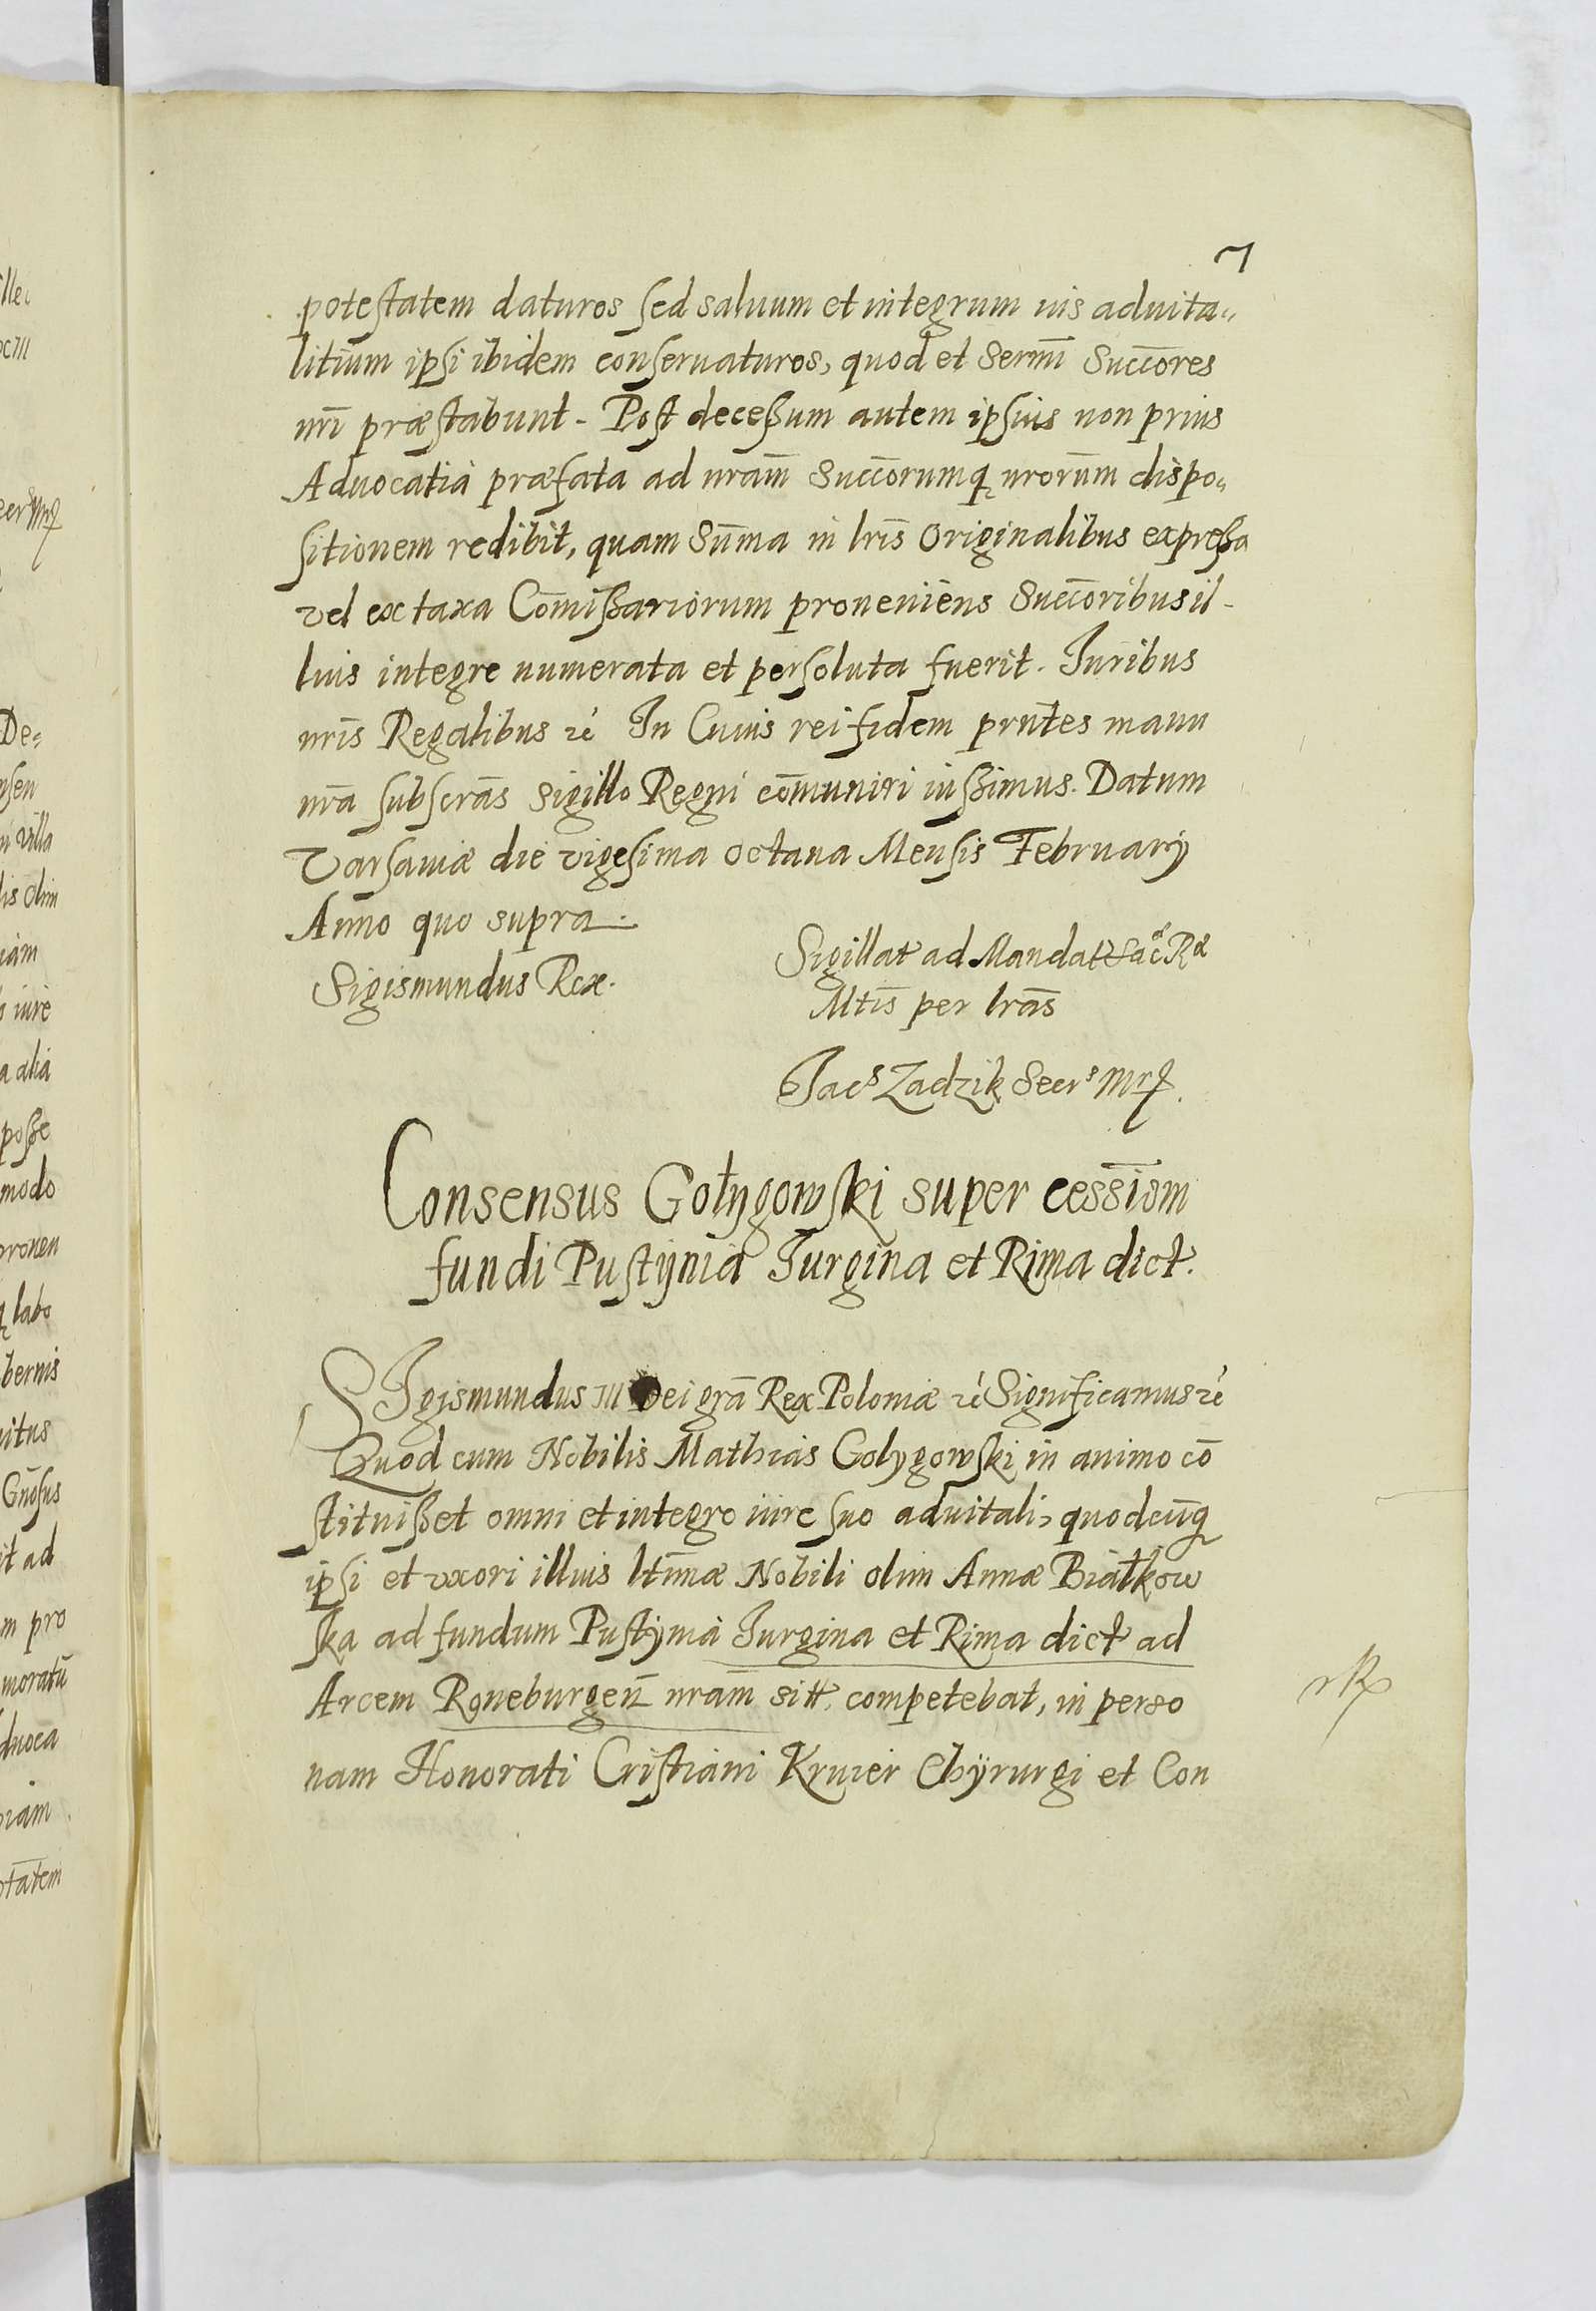 7
potestatem daturos sed saluum et integrum ius aduita„
litium ipsi ibidem conseruaturos, quod et Sermi̅ Succo̅res
nri̅ præstabunt. Post decessum autem ipsius non prius
Aduocatia præfata ad nram̅ Succo̅rumq̨ nroru̅m dispo„
sitionem redibit, quam Su̅ma in lri̅s Originalibus expressa
vel ex taxa Co̅missariorum proueniens Succo̅ribus il-
lius integre numerata et persoluta fuerit. Iuribus
nri̅s Regalibus rc̓ In Cuius rei fidem prnt̅es manu
nra̅ subscra̅s sigillo Regni co̅muniri iussimus. Datum
Varsauiæ die vigesima octaua Mensis February
Anno quo supra.
Sigismundus Rex.
Sigillat ad Mandat Sac̃ Rͣ
Mti̅s per lra̅s
Jacˢ Zadzik Secrˢ Mrp̃.
Consensus Gołygowski super cessio̅m
fundi Pustÿnia Jurgina et Rima dict.
SIgismundus III Dei gra̅ Rex Poloniæ rc̓ Significamus rc̓
Quod cum Nobilis Mathias Golygowski in animo co̅
stituisset omni et integro iure suo aduitali, quodcu̅q̨
ipsi et vxori illius lti̅mæ Nobili olim Annæ Białkow
ska ad fundum Pustynia Jurgina et Rima dict ad
Arcem Roneburgen̅ nram̅ sitt. competebat, in perso
nam Honorati Cristiani Kruier Chÿrurgi et Con